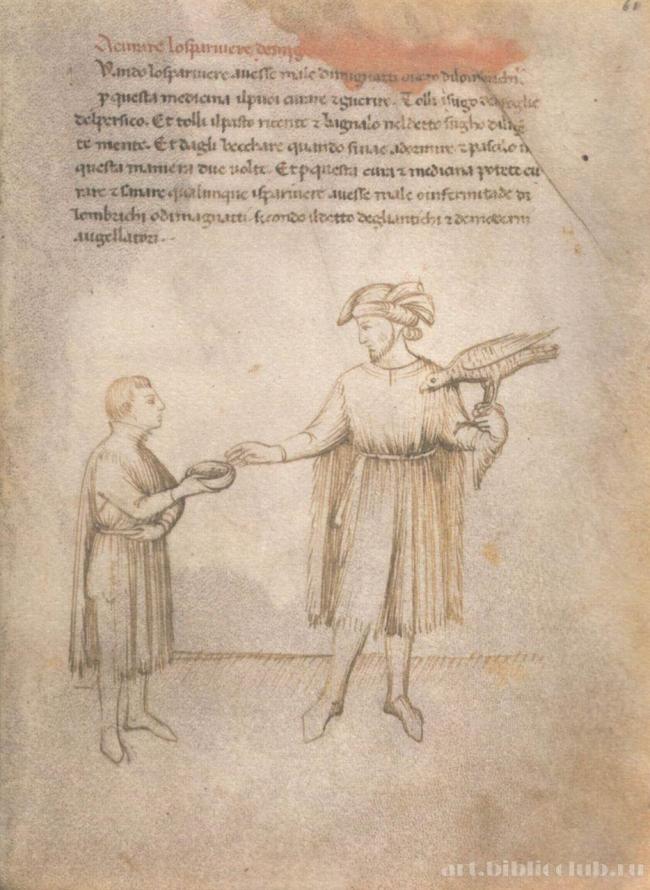 60
A curare lo sparviere de mig
Vando lo sparviere avesse male di mignatti overo di lombrichi.
p questa medicina il puoi curare ⁊ guerire. Tolli i sugo de foglie
del persico. Et tolli il pasto recente ⁊ bagnalo nel detto sugho
te mente. Et dagli beccare quando si vae a dormire ⁊ pascilo
questa maniera due volte. Et p questa cura ⁊ medicina potete cu
rare ⁊ sanare qualunque isparviere avesse male o infermitade di
lombrichi o di magnatti. secondo il detto degli antichi ⁊ de moderni
augellatori.
art.biblioclub.ru